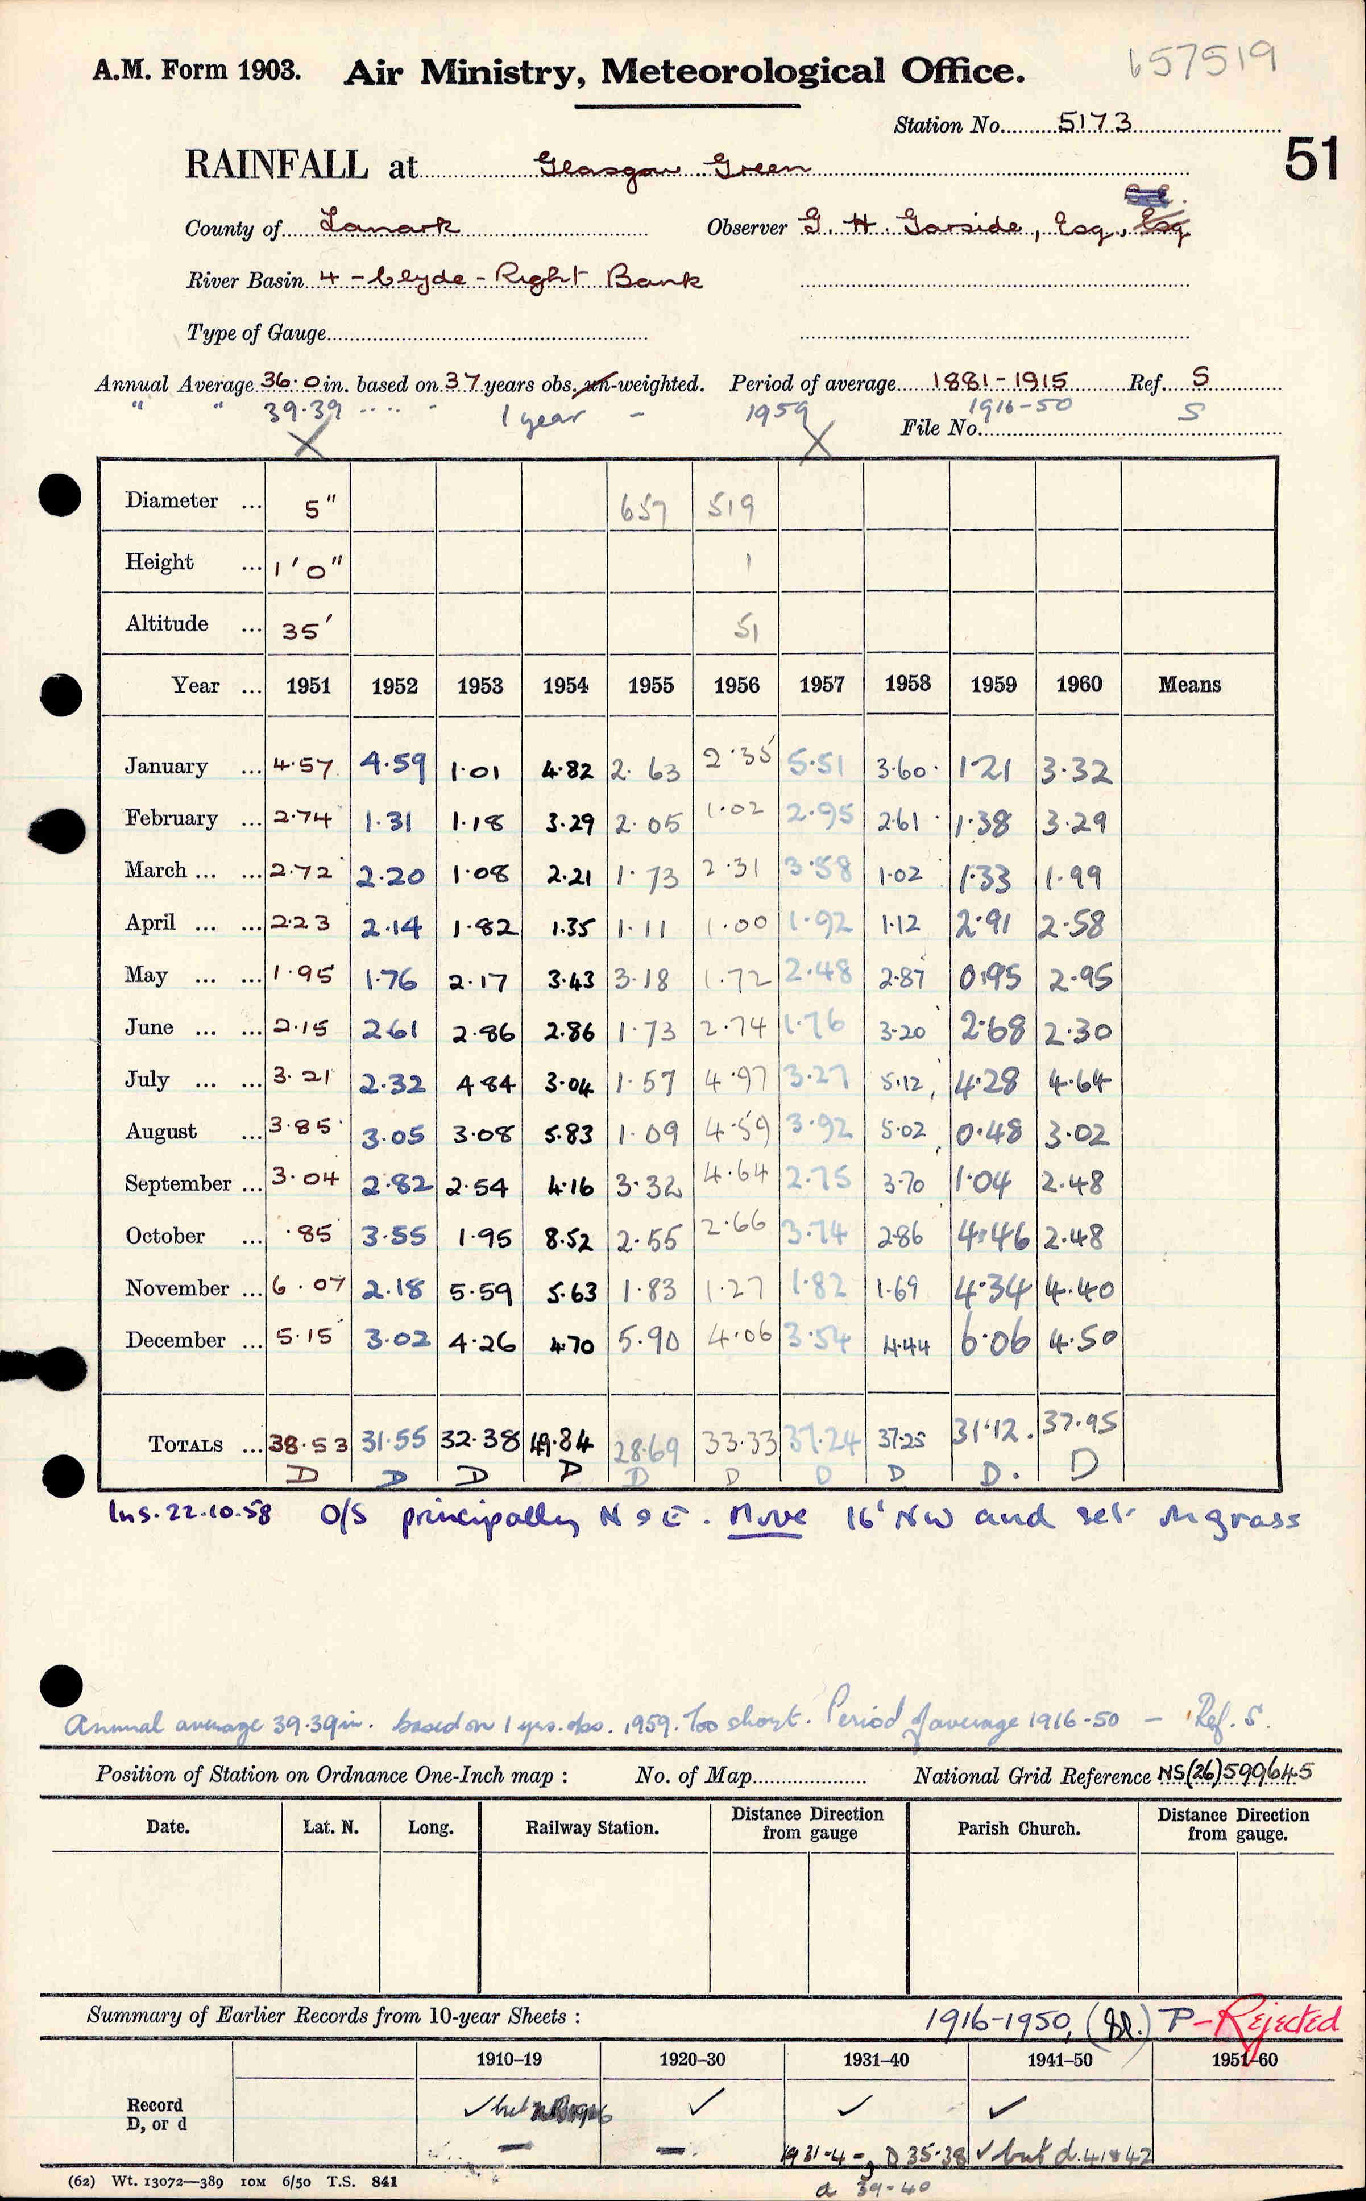 A.M. Form 1903. Air Ministry, Meteorological Office. 657519
Station No. 5173
51
RAINFALL at Glasgow Green
County of Lanark Observer G. H. Garside, Esq., Esq
River Basin 4 - Clyde - Right Bank
Type of Gauge
Annual Average 36.0 in. based on 37 years obs. un-weighted. Period of average 1881-1915 Ref. S
" " 39.39 1 year - 1959 1916-50 S
File No.
Diameter ... 5" 657 519
Height ... 1'0" 1
Altitude ... 35' 51
Year ... 1951 1952 1953 1954 1955 1956 1957 1958 1959 1960 Means
January ... 4.57 4.59 1.01 4.82 2.63 2.35 5.51 3.60 1.21 3.32
February ... 2.74 1.31 1.18 3.29 2.05 1.02 2.95 2.61 1.38 3.29
March ... ... 2.72 2.20 1.08 2.21 1.73 2.31 3.58 1.02 1.33 1.99
April ... ... 2.23 2.14 1.82 1.35 1.11 1.00 1.92 1.12 2.91 2.58
May ... ... 1.95 1.76 2.17 3.43 3.18 1.72 2.48 2.87 0.95 2.95
June ... ... 2.15 2.61 2.86 2.86 1.73 2.74 1.76 3.20 2.68 2.30
July ... ... 3.21 2.32 4.84 3.04 1.57 4.97 3.27 5.12 4.28 4.64
August ... 3.85 3.05 3.08 5.83 1.09 4.59 3.92 5.02 0.48 3.02
September ... 3.04 2.82 2.54 4.16 3.32 4.64 2.75 3.70 1.04 2.48
October ... .85 3.55 1.95 8.52 2.55 2.66 3.74 2.86 4.46 2.48
November ... 6.07 2.18 5.59 5.63 1.83 1.27 1.82 1.69 4.34 4.40
December ... 5.15 3.02 4.26 4.70 5.90 4.06 3.54 4.44 6.06 4.50
TOTALS ... 38.53 31.55 32.38 49.84 28.69 33.33 37.24 37.25 31.12. 37.95
D D D D D D D D D. D
Ins. 22.10.58 O/S principally N & E. Move 16' NW and set in grass
Annual average 39.39 in. based on 1 yrs. obs. 1959. Too short. Period of average 1916-50 - Ref. S.
Position of Station on Ordnance One-Inch map : No. of Map National Grid Reference NS(26)599645
Date. Lat. N. Long. Railway Station. Distance Direction from gauge Parish Church. Distance Direction from gauge.
Summary of Earlier Records from 10-year Sheets : 1916-1950, P-Rejected
1910-19 1920-30 1931-40 1941-50 1951-60
Record
D, or d
✓ ✓ ✓ ✓
1931-4 -, D 35-38 ✓ but d. 41 & 42
d 39-40
(62) Wt. 13072—389 10M 6/50 T.S. 841